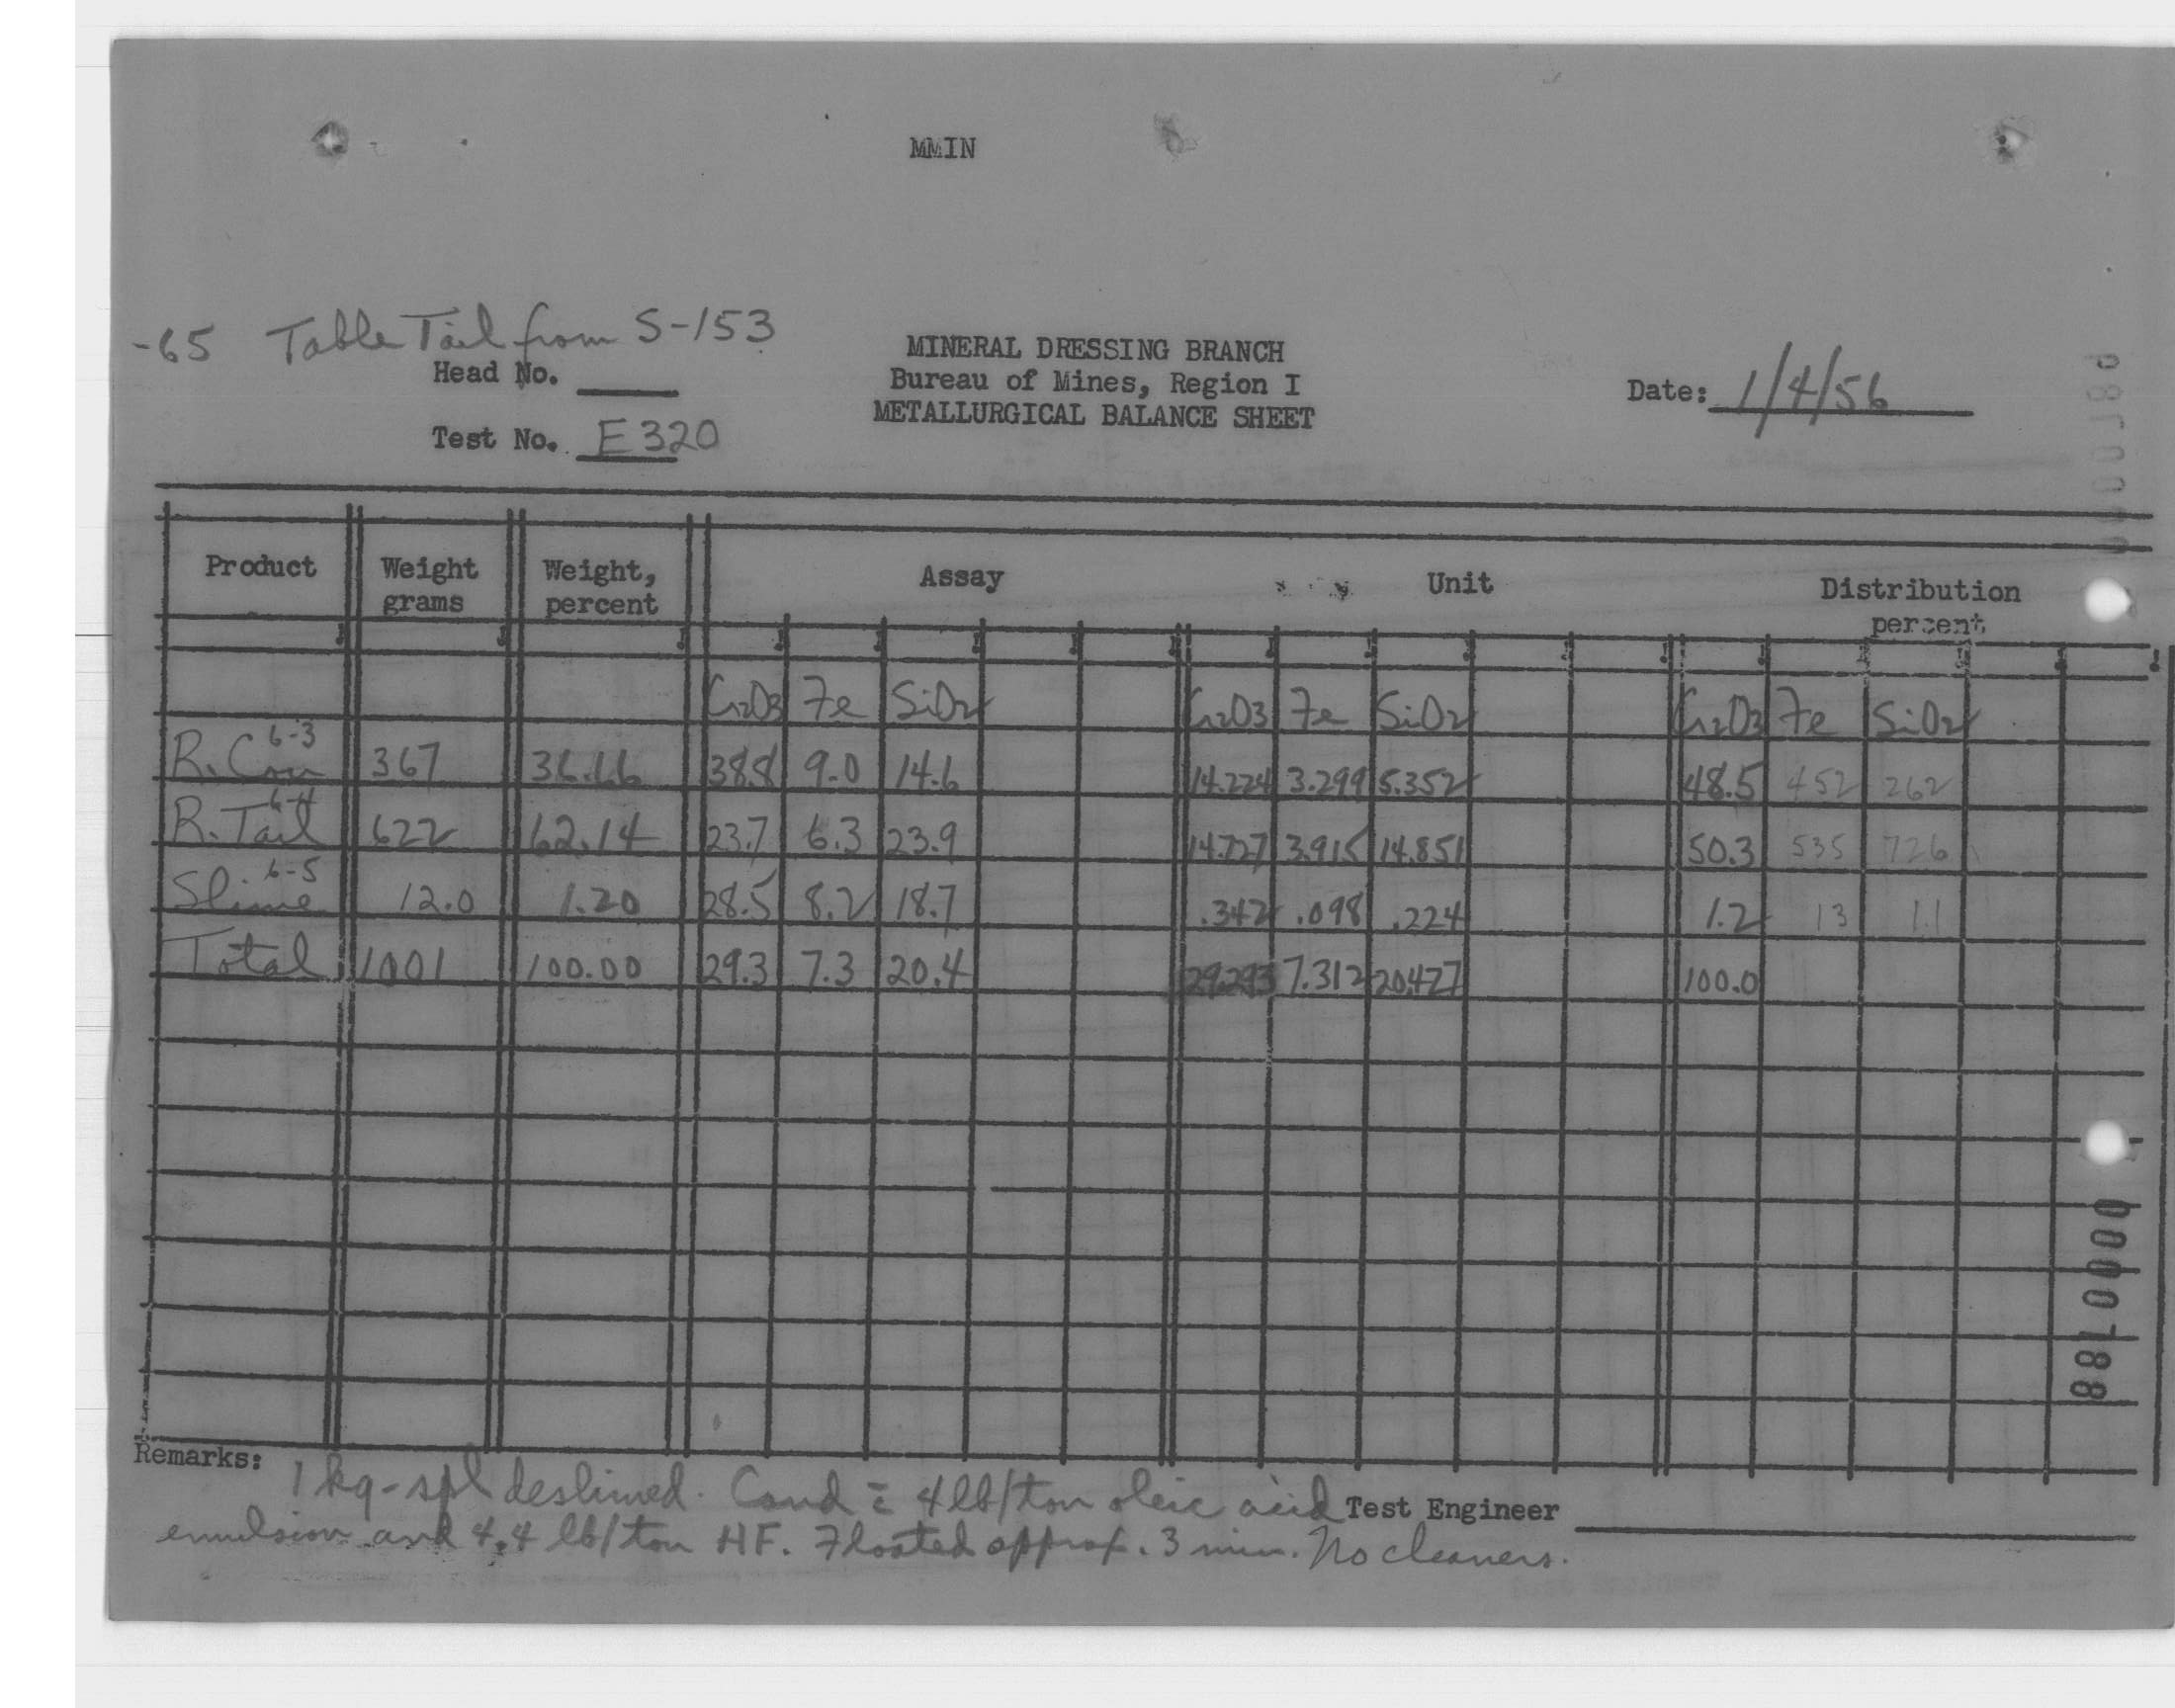 MMIN
-65 Table Tail from S-153
Head No.
Test No. E320
MINERAL DRESSING BRANCH
Bureau of Mines, Region I
METALLURGICAL BALANCE SHEET
Date: 1/4/56
Product Weight grams Weight, percent Assay Unit Distribution percent
Cr2O3 Fe SiO2 Cr2O3 Fe SiO2 Cr2O3 Fe SiO2
R. Con 6-3 367 36.66 38.8 9.0 14.6 14.224 3.299 5.352 48.5 452 262
R. Tail 6-4 622 62.14 23.7 6.3 23.9 14.727 3.915 14.851 50.3 535 726
Slime 6-5 12.0 1.20 28.5 8.2 18.7 .342 .098 .224 1.2 13 11
Total 1001 100.00 29.3 7.3 20.4 29.293 7.312 20.427 100.0
Remarks: 1 kg-spl deslimed. Cond c̄ 4 lb/ton oleic acid
emulsion and 4.4 lb/ton HF. Floated approx. 3 min. No cleaners.
Test Engineer
0000188